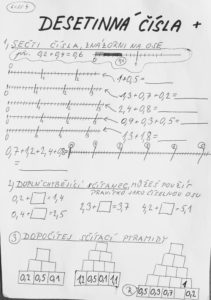 DESETINNÁ ČÍSLA +
1) SEČTI ČÍSLA, ZNÁZORNI NA OSE
př: 0,2 + 0,4 = 0,6
1 + 0,5 =
1,3 + 0,7 + 0,2 =
2,4 + 0,8 =
0,4 + 0,3 + 0,5 =
1,3 + 1,8 =
0,7 + 1,2 + 2,4 + 0,8
2) DOPLŇ CHYBĚJÍCÍ SČÍTANEC, MŮŽEŠ POUŽÍT
PRAVÍTKO JAKO ČÍSELNOU OSU
0,2 + □ = 1,4
2,3 + □ = 3,7
4,2 + □ = 5,1
0,4 + □ = 2,5
3) DOPOČÍTEJ SČÍTACÍ PYRAMIDY
0,2 0,5 0,1